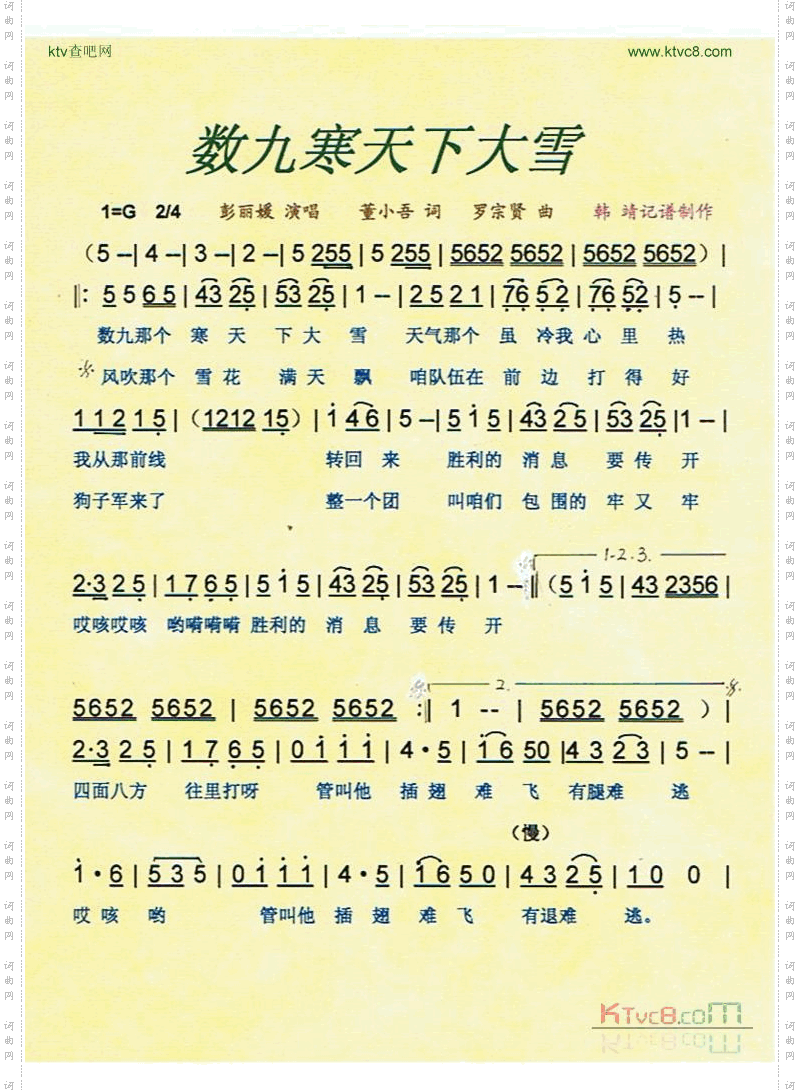 ktv查吧网 www.ktvc8.com
数九寒天下大雪
1=G 2/4 彭丽媛 演唱 董小吾 词 罗宗贤 曲 韩 靖记谱制作
（5 --| 4 --| 3 --| 2 --| 5 255 | 5 255 | 5652 5652 | 5652 5652）|
||: 5 5 6 5 | 43 25 | 53 25 | 1 -- | 2 5 2 1 | 76 5 2 | 76 52 | 5 -- |
数九那个 寒 天 下 大 雪 天气那个 虽 冷我 心 里 热
风吹那个 雪 花 满 天 飘 咱队伍在 前 边 打 得 好
1 1 2 1 5 | （1212 15）| 1 4 6 | 5 -- | 5 1 5 | 43 2 5 | 53 25 |1 -- |
我从那前线 转回 来 胜利的 消 息 要 传 开
狗子军来了 整一个团 叫咱们 包 围的 牢 又 牢
1-2.3.
2·3 2 5 | 1 7 6 5 | 5 1 5 | 43 25 | 53 25 | 1 -- ||（5 1 5 | 43 2356 |
哎咳哎咳 哟嗬嗬嗬 胜利的 消 息 要 传 开
2.
5652 5652 | 5652 5652 :|| 1 -- | 5652 5652 ）|
2·3 2 5 | 1 7 6 5 | 0 1 1 1 | 4·5 | 1 6 50 |4 3 2 3 | 5 -- |
四面八方 往里打呀 管叫他 插 翅 难 飞 有腿难 逃
（慢）
1·6 | 5 3 5 | 0 1 1 1 | 4·5 | 1 6 5 0 | 4 3 2 5 | 1 0 0 |
哎 咳 哟 管叫他 插 翅 难 飞 有退难 逃。
KTvc8.com
词曲网